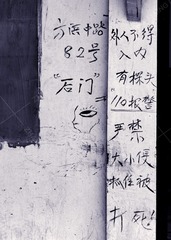 方浜中路
82号
"石门"
外人不得
入内
有探头
110报警
严禁
大小便
抓住被
打死!